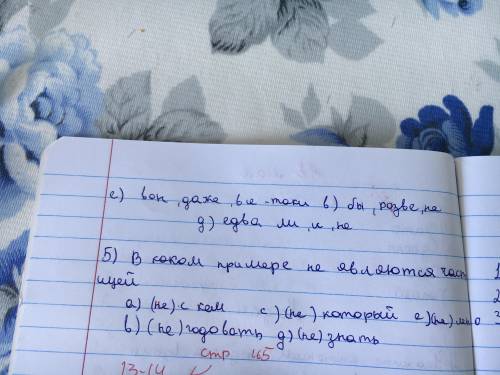 е) вон, даже, все-таки в) бы, разве, не
д) едва ли, и, не
5) В каком примере не являются част
ицей
а) (не) с кем с) (не) который е) (не) мено
в) (не) годовать д) (не) знать
стр 165
13-14
1
2
3